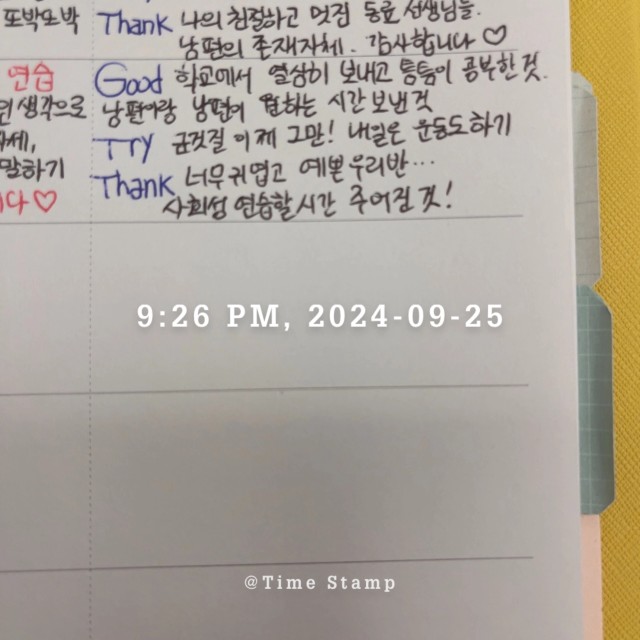 또박또박
Thank 나의 친절하고 멋진 동료 선생님들.
남편의 존재자체. 감사합니다 ♡
연습
Good 학교에서 열심히 보내고 틈틈이 공부한 것.
생각으로
남편이랑 남편이 원하는 시간 보낸 것
Try 군것질 이제 그만! 내일은 운동도 하기
말하기
Thank 너무 귀엽고 예쁜 우리반...
다♡
사회성 연습할 시간 주어진 것!
9:26 PM, 2024-09-25
@Time Stamp